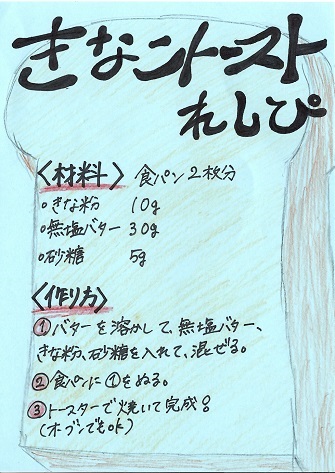 きなこトースト
れしぴ
〈材料〉 食パン2枚分
○きな粉 10g
○無塩バター 30g
○砂糖 5g
〈作り方〉
①バターを溶かして、無塩バター、
きな粉、砂糖を入れて、混ぜる。
②食パンに①をぬる。
③トースターで焼いて完成!
(オーブンでもok)